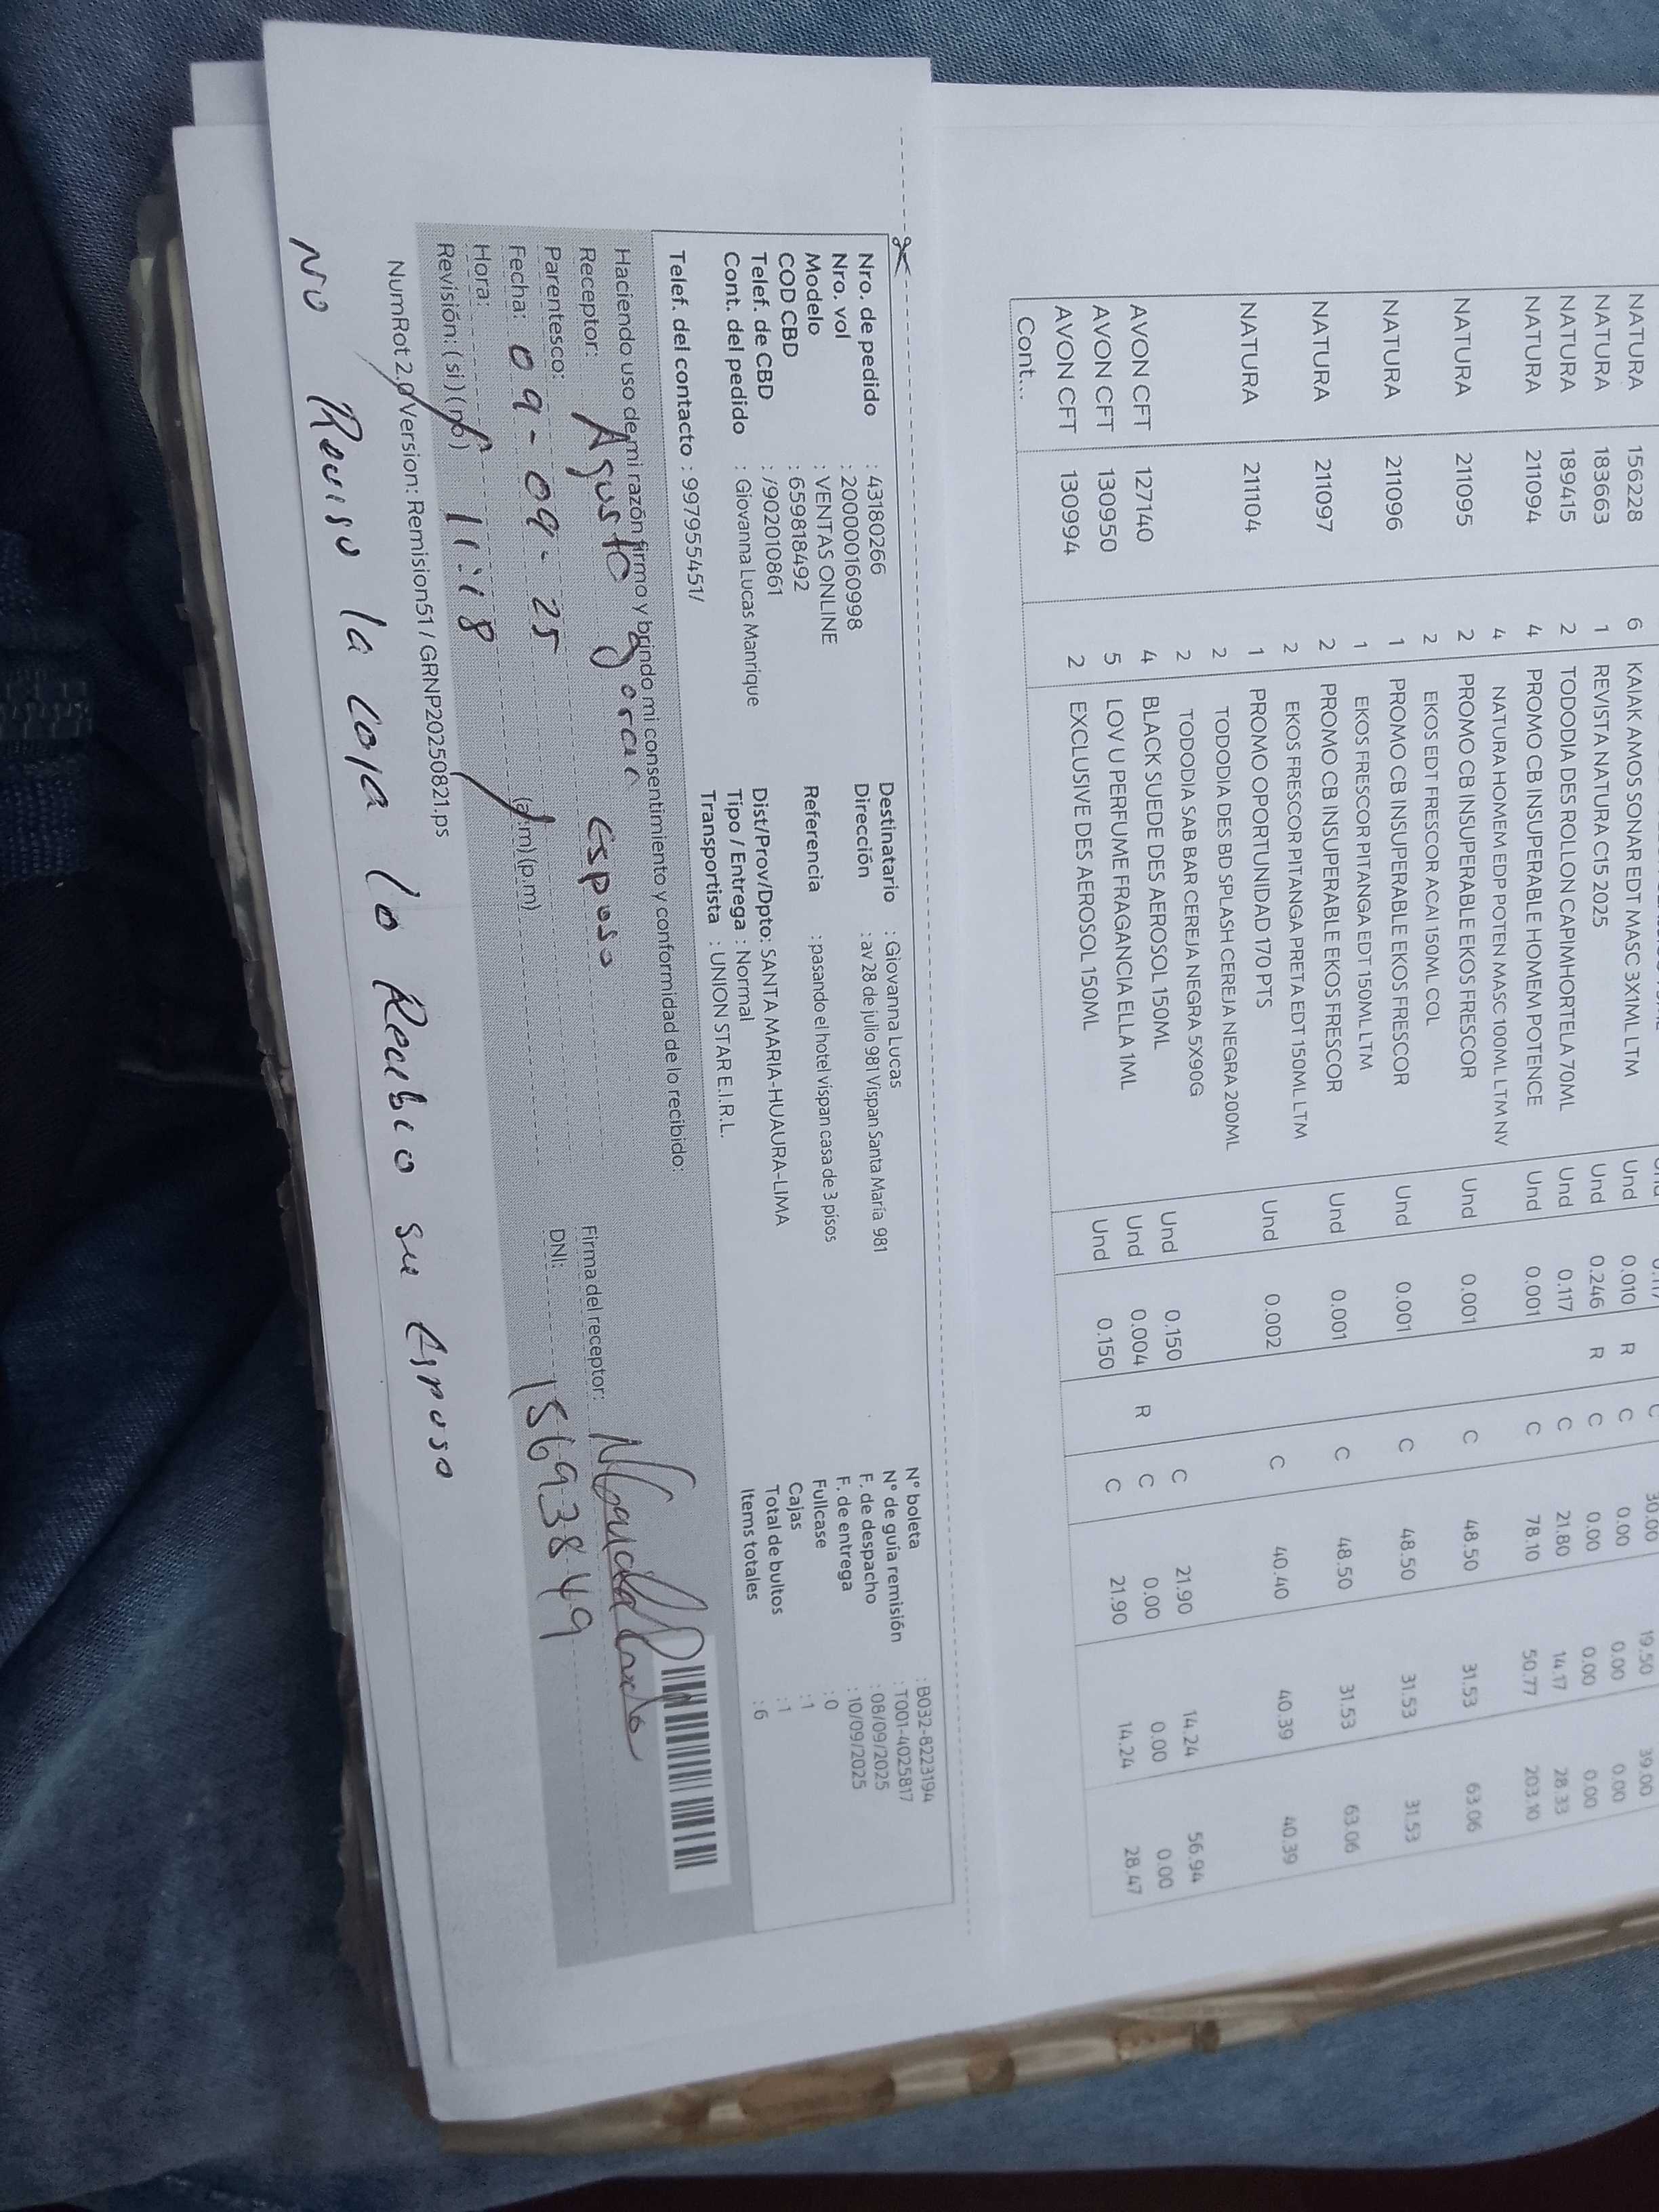 NATURA 156228 6 KAIAK AMOS SONAR EDT MASC 3X1ML LTM Und 0.010 R C 0.00 0.00 0.00
NATURA 183663 1 REVISTA NATURA C15 2025 Und 0.246 R C 0.00 0.00 0.00
NATURA 189415 2 TODODIA DES ROLLON CAPIMHORTELA 70ML Und 0.117 C 21.80 14.17 28.33
NATURA 211094 4 PROMO CB INSUPERABLE HOMEM POTENCE Und 0.001 C 78.10 50.77 203.10
4 NATURA HOMEM EDP POTEN MASC 100ML LTM NV
NATURA 211095 2 PROMO CB INSUPERABLE EKOS FRESCOR Und 0.001 C 48.50 31.53 63.06
2 EKOS EDT FRESCOR ACAI 150ML COL
NATURA 211096 1 PROMO CB INSUPERABLE EKOS FRESCOR Und 0.001 C 48.50 31.53 31.53
1 EKOS FRESCOR PITANGA EDT 150ML LTM
NATURA 211097 2 PROMO CB INSUPERABLE EKOS FRESCOR Und 0.001 C 48.50 31.53 63.06
2 EKOS FRESCOR PITANGA PRETA EDT 150ML LTM
NATURA 211104 1 PROMO OPORTUNIDAD 170 PTS Und 0.002 C 40.40 40.39 40.39
2 TODODIA DES BD SPLASH CEREJA NEGRA 200ML
2 TODODIA SAB BAR CEREJA NEGRA 5X90G
AVON CFT 127140 4 BLACK SUEDE DES AEROSOL 150ML Und 0.150 C 21.90 14.24 56.94
AVON CFT 130950 5 LOV U PERFUME FRAGANCIA ELLA 1ML Und 0.004 R C 0.00 0.00 0.00
AVON CFT 130994 2 EXCLUSIVE DES AEROSOL 150ML Und 0.150 C 21.90 14.24 28.47
Cont...
Nro. de pedido : 43180266 Destinatario : Giovanna Lucas N° boleta : B032-8223194
Nro. vol : 200000160998 Dirección : av 28 de julio 981 Vispan Santa María 981 N° de guía remisión : T001-4025817
Modelo : VENTAS ONLINE F. de despacho : 08/09/2025
COD CBD : 659818492 Referencia : pasando el hotel vispan casa de 3 pisos F. de entrega : 10/09/2025
Telef. de CBD : /902010861 Fullcase : 0
Cont. del pedido : Giovanna Lucas Manrique Dist/Prov/Dpto: SANTA MARIA-HUAURA-LIMA Cajas : 1
Tipo / Entrega : Normal Total de bultos : 1
Telef. del contacto : 997955451/ Transportista : UNION STAR E.I.R.L. Items totales : 6
Haciendo uso de mi razón firmo y brindo mi consentimiento y conformidad de lo recibido:
Receptor: Agusto esposo Firma del receptor:
Parentesco: DNI: 15693849
Fecha: 09-09-25
Hora: 11:18 (a.m) (p.m)
Revisión: (si) (no)
NumRot 2.0 Version: Remision51 / GRNP20250821.ps
No Reviso la caja lo Recibio su Esposo